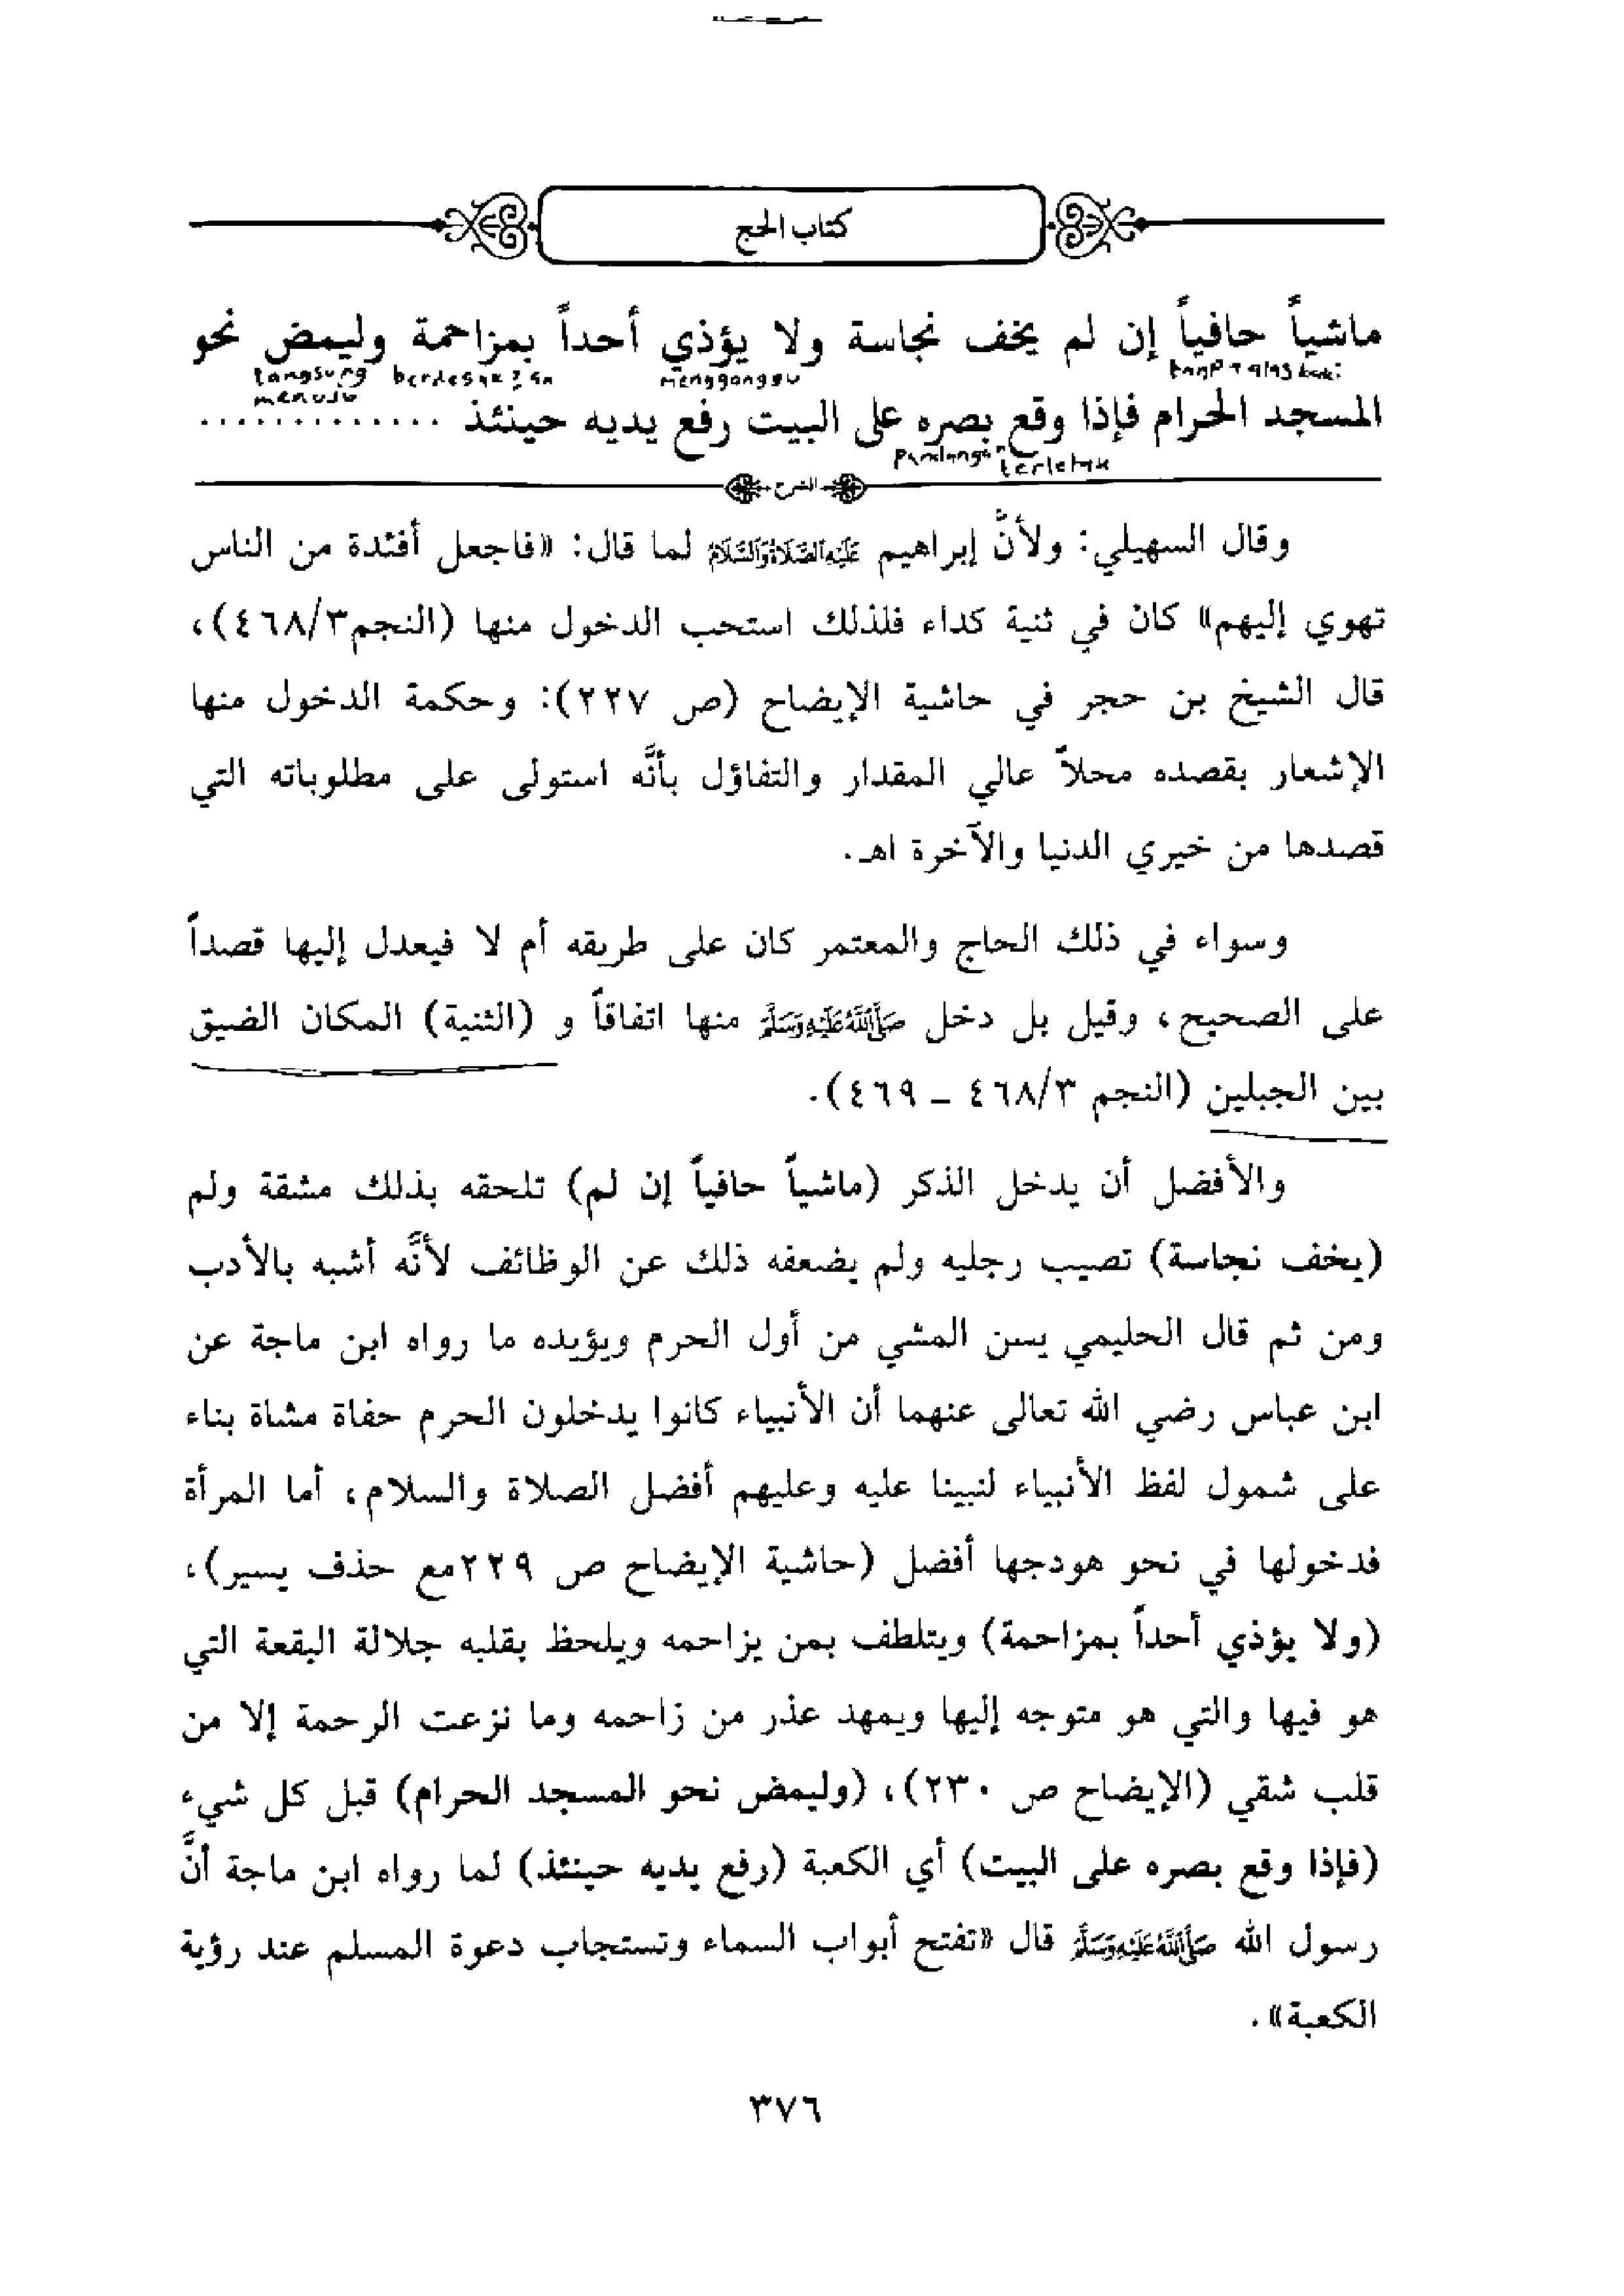 كتاب الحج
ماشياً حافياً إن لم يخف نجاسة ولا يؤذي أحداً بمزاحمة وليمض نحو
langsung berdesak2an mengganggu tanpa alas kaki
menuju
المسجد الحرام فإذا وقع بصره على البيت رفع يديه حينئذ .............
terletak
الشرح
وقال السهيلي: ولأنَّ إبراهيم عَلَيْهِ الصَّلَاةُ وَالسَّلَامُ لما قال: «فاجعل أفئدة من الناس
تهوي إليهم» كان في ثنية كداء فلذلك استحب الدخول منها (النجم٤٦٨/٣)،
قال الشيخ بن حجر في حاشية الإيضاح (ص ٢٢٧): وحكمة الدخول منها
الإشعار بقصده محلاً عالي المقدار والتفاؤل بأنَّه استولى على مطلوباته التي
قصدها من خيري الدنيا والآخرة اهـ.
وسواء في ذلك الحاج والمعتمر كان على طريقه أم لا فيعدل إليها قصداً
على الصحيح، وقيل بل دخل صَلَّى اللَّهُ عَلَيْهِ وَسَلَّمَ منها اتفاقاً و (الثنية) المكان الضيق
بين الجبلين (النجم ٤٦٨/٣ – ٤٦٩).
والأفضل أن يدخل الذكر (ماشياً حافياً إن لم) تلحقه بذلك مشقة ولم
(يخف نجاسة) تصيب رجليه ولم يضعفه ذلك عن الوظائف لأنَّه أشبه بالأدب
ومن ثم قال الحليمي يسن المشي من أول الحرم ويؤيده ما رواه ابن ماجة عن
ابن عباس رضي الله تعالى عنهما أن الأنبياء كانوا يدخلون الحرم حفاة مشاة بناء
على شمول لفظ الأنبياء لنبينا عليه وعليهم أفضل الصلاة والسلام، أما المرأة
فدخولها في نحو هودجها أفضل (حاشية الإيضاح ص ٢٢٩مع حذف يسير)،
(ولا يؤذي أحداً بمزاحمة) ويتلطف بمن يزاحمه ويلحظ بقلبه جلالة البقعة التي
هو فيها والتي هو متوجه إليها ويمهد عذر من زاحمه وما نزعت الرحمة إلا من
قلب شقي (الإيضاح ص ٢٣٠)، (وليمض نحو المسجد الحرام) قبل كل شيء
(فإذا وقع بصره على البيت) أي الكعبة (رفع يديه حينئذ) لما رواه ابن ماجة أنَّ
رسول الله صَلَّى اللَّهُ عَلَيْهِ وَسَلَّمَ قال «تفتح أبواب السماء وتستجاب دعوة المسلم عند رؤية
الكعبة».
٣٧٦